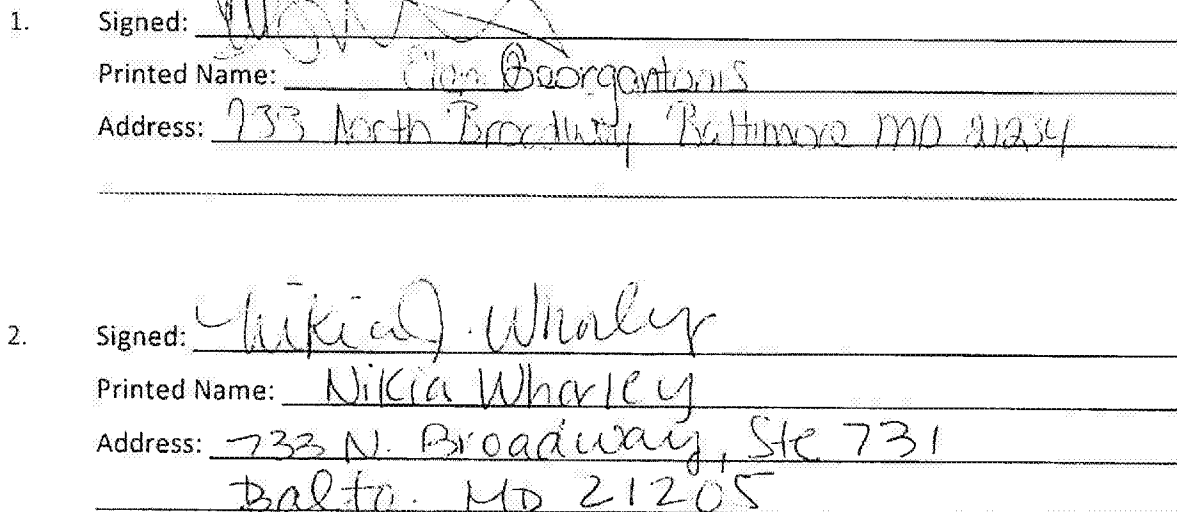 1. Signed:
Printed Name: Georgantonis
Address: 733 North Broadway Baltimore MD 21234
2. Signed: Nikia J. Wharley
Printed Name: Nikia Wharley
Address: 733 N. Broadway, Ste 731
Balto. MD 21205